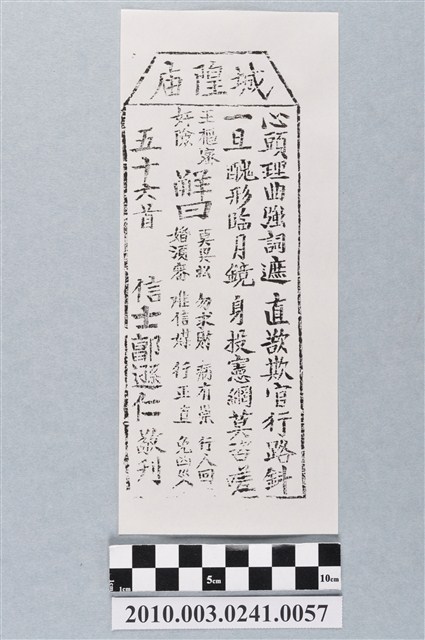 城隍庙
心頭理曲強詞遮 直欲欺官行路斜
一旦醜形臨月鏡 身投憲網莫咨嗟
王樞密
奸險
解曰
莫興訟 勿求財 病有祟 行人回
婚須審 唯信媒 行正直 免凶災
五十六首 信士郭遜仁敬刊
1cm 5cm 10cm
2010.003.0241.0057